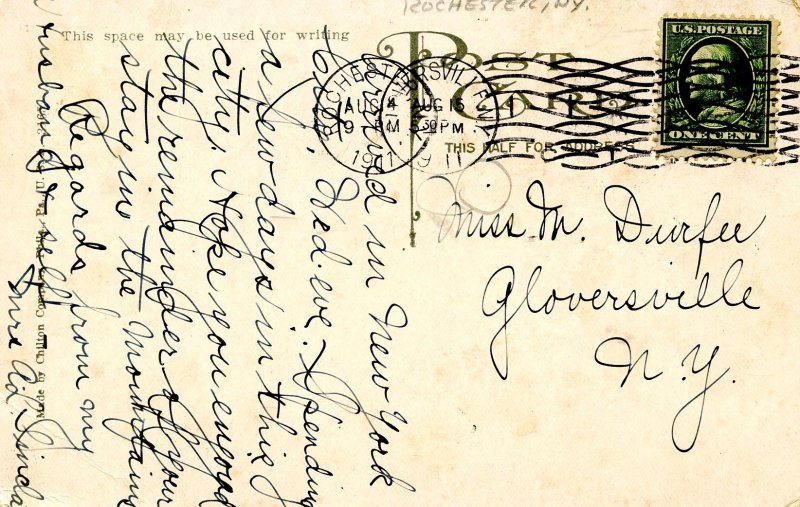 ROCHESTER, NY.
This space may be used for writing
POST CARD
THIS HALF FOR ADDRESS
U.S. POSTAGE
ONE CENT
ROCHESTER
AUG 4
9 - PM
1911
AUG 15
5 30 PM
1911
Miss M. Durfee
Gloversville
N.Y.
Arrived in New York
City, Wed. eve. Spending
a few days in this
city. Hope you enjoyed
the remainder of your
stay in the Mountains
Regards from my
husband & self
Mrs Ad. Sincla
Made by Chilton Co